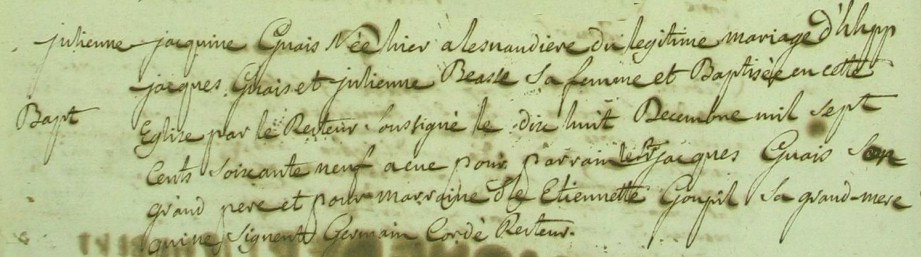 julienne jacquine Guais Née hier alesnaudiere du legitime mariage d'h
jacques Guais et julienne Beasse Sa femme et Baptisée en cette
Bapt Eglise par le Recteur Soussigné le dix huit Decembre mil sept
Cents soixante neuf a eue pour parrain jacques Guais Son
grand pere et pour marraine Etiennette Goupil Sa grand-mere
qui ne signent Germain Cordé Recteur.